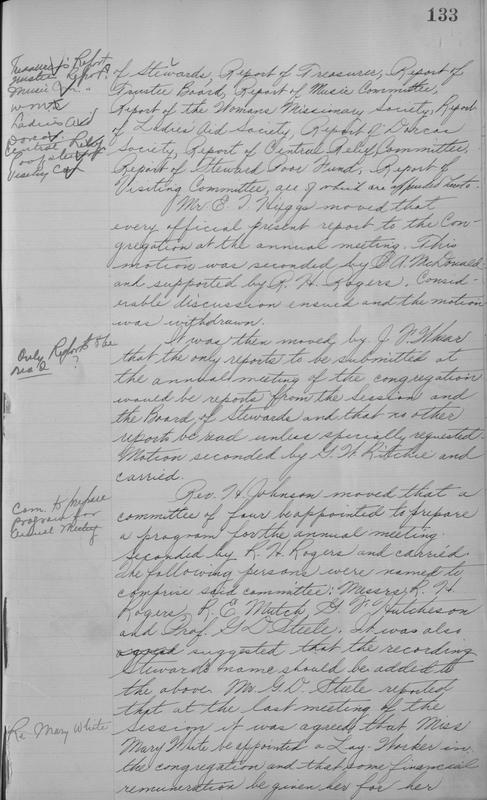 133
Treasurer's Report
Trustee Report
Music Com.
W. M. S.
Ladies Aid
Dorcas
Central Relief
Poor Steward
Visiting Com
of Stewards, Report of Treasurer, Report of
Trustee Board, Report of Music Committee,
Report of the Womans Missionary Society, Report
of Ladies Aid Society, Report of Dorcas
Society, Report of Central Relief Committee,
Report of Steward Poor Fund, Report of
Visiting Committee, all of which are appended hereto.
Mr. E. T. Higgs moved that
every official present report to the Con-
gregation at the annual meeting. This
motion was seconded by A. McDonald
and supported by R. H. Rogers. Consid-
erable discussion ensued and the motion
was withdrawn.
Only Reports to be
read ?
It was then moved by J. V.
that the only reports to be submitted at
the annual meeting of the congregation
would be reports from the Session and
the Board of Stewards and that no other
reports be read unless specially requested.
Motion seconded by G. W. Ritchie and
carried.
Com. to prepare
program for
annual Meeting
Rev. H. Johnson moved that a
committee of four be appointed to prepare
a program for the annual meeting.
Seconded by R. H. Rogers and carried.
The following persons were named to
comprise said committee: Messrs. R. H.
Rogers, R. E. Mutch, G. V. Hutcheson
and Prof. G. D. Steele. It was also
agreed suggested that the recording
Steward's name should be added to
the above. Mr. G. D. Steele reported
that at the last meeting of the
Session it was agreed that Miss
Re Mary White
Mary White be appointed a Lay-Worker in
the congregation and that some financial
remuneration be given her for her